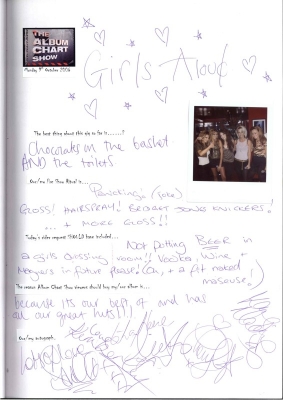 THE
ALBUM
CHART
SHOW
Monday 9th October 2006
Girls Aloud
The best thing about this gig so far is.......?
Chocorates in the basket
AND the toilets.
Our/my Pre Show Ritual is...
Panicking. (joke)
GLOSS! HAIRSPRAY! BRIDGET JONES KNICKERS!
... + MORE GLOSS!!
Today's rider request SHOULD have included...
Not putting BEER in
a girls dressing room!! Vodka, Wine +
Magners in future please! (Oh, + a fit naked
masseuse!)
The reason Album Chart Show viewers should buy my/our album is...
because its our best of and has
all our great hits!!!
Our/my autograph...